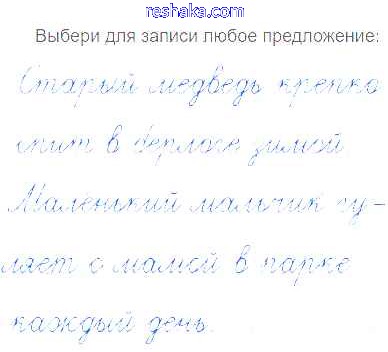 reshaka.com
Выбери для записи любое предложение:
Старый медведь крепко
спит в берлоге зимой
Маленький мальчик гу-
ляет с мамой в парке
каждый день.